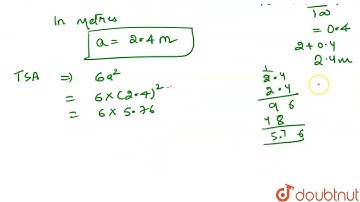 In metres
a = 2.4 m
TSA ⇒ 6a²
= 6 × (2.4)²
= 6 × 5.76
100
= 0.4
2 + 0.4
2.4 m
1
2.4
2.4
9 6
4 8
5.7 6
doubtnut